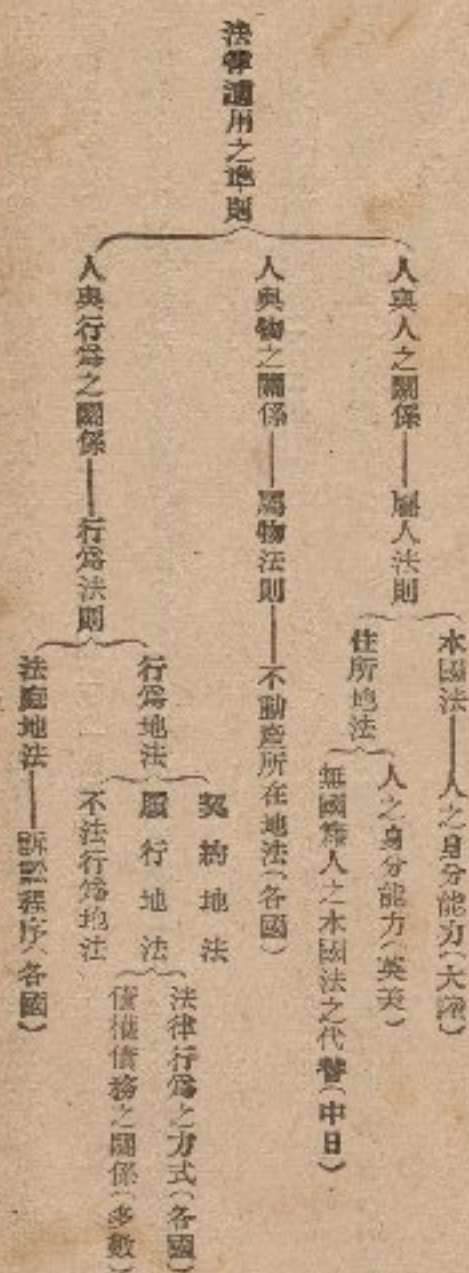 法律適用之準則
人與人之關係——屬人法則
本國法——人之身分能力(大陸)
住所地法
人之身分能力(英美)
無國籍人之本國法之代替(中日)
人與物之關係——屬物法則——不動產所在地法(各國)
人與行爲之關係——行爲法則
行爲地法
契約地法
履行地法
法律行爲之方式(各國)
債權債務之關係(多數)
不法行爲地法
法庭地法——訴訟程序(各國)